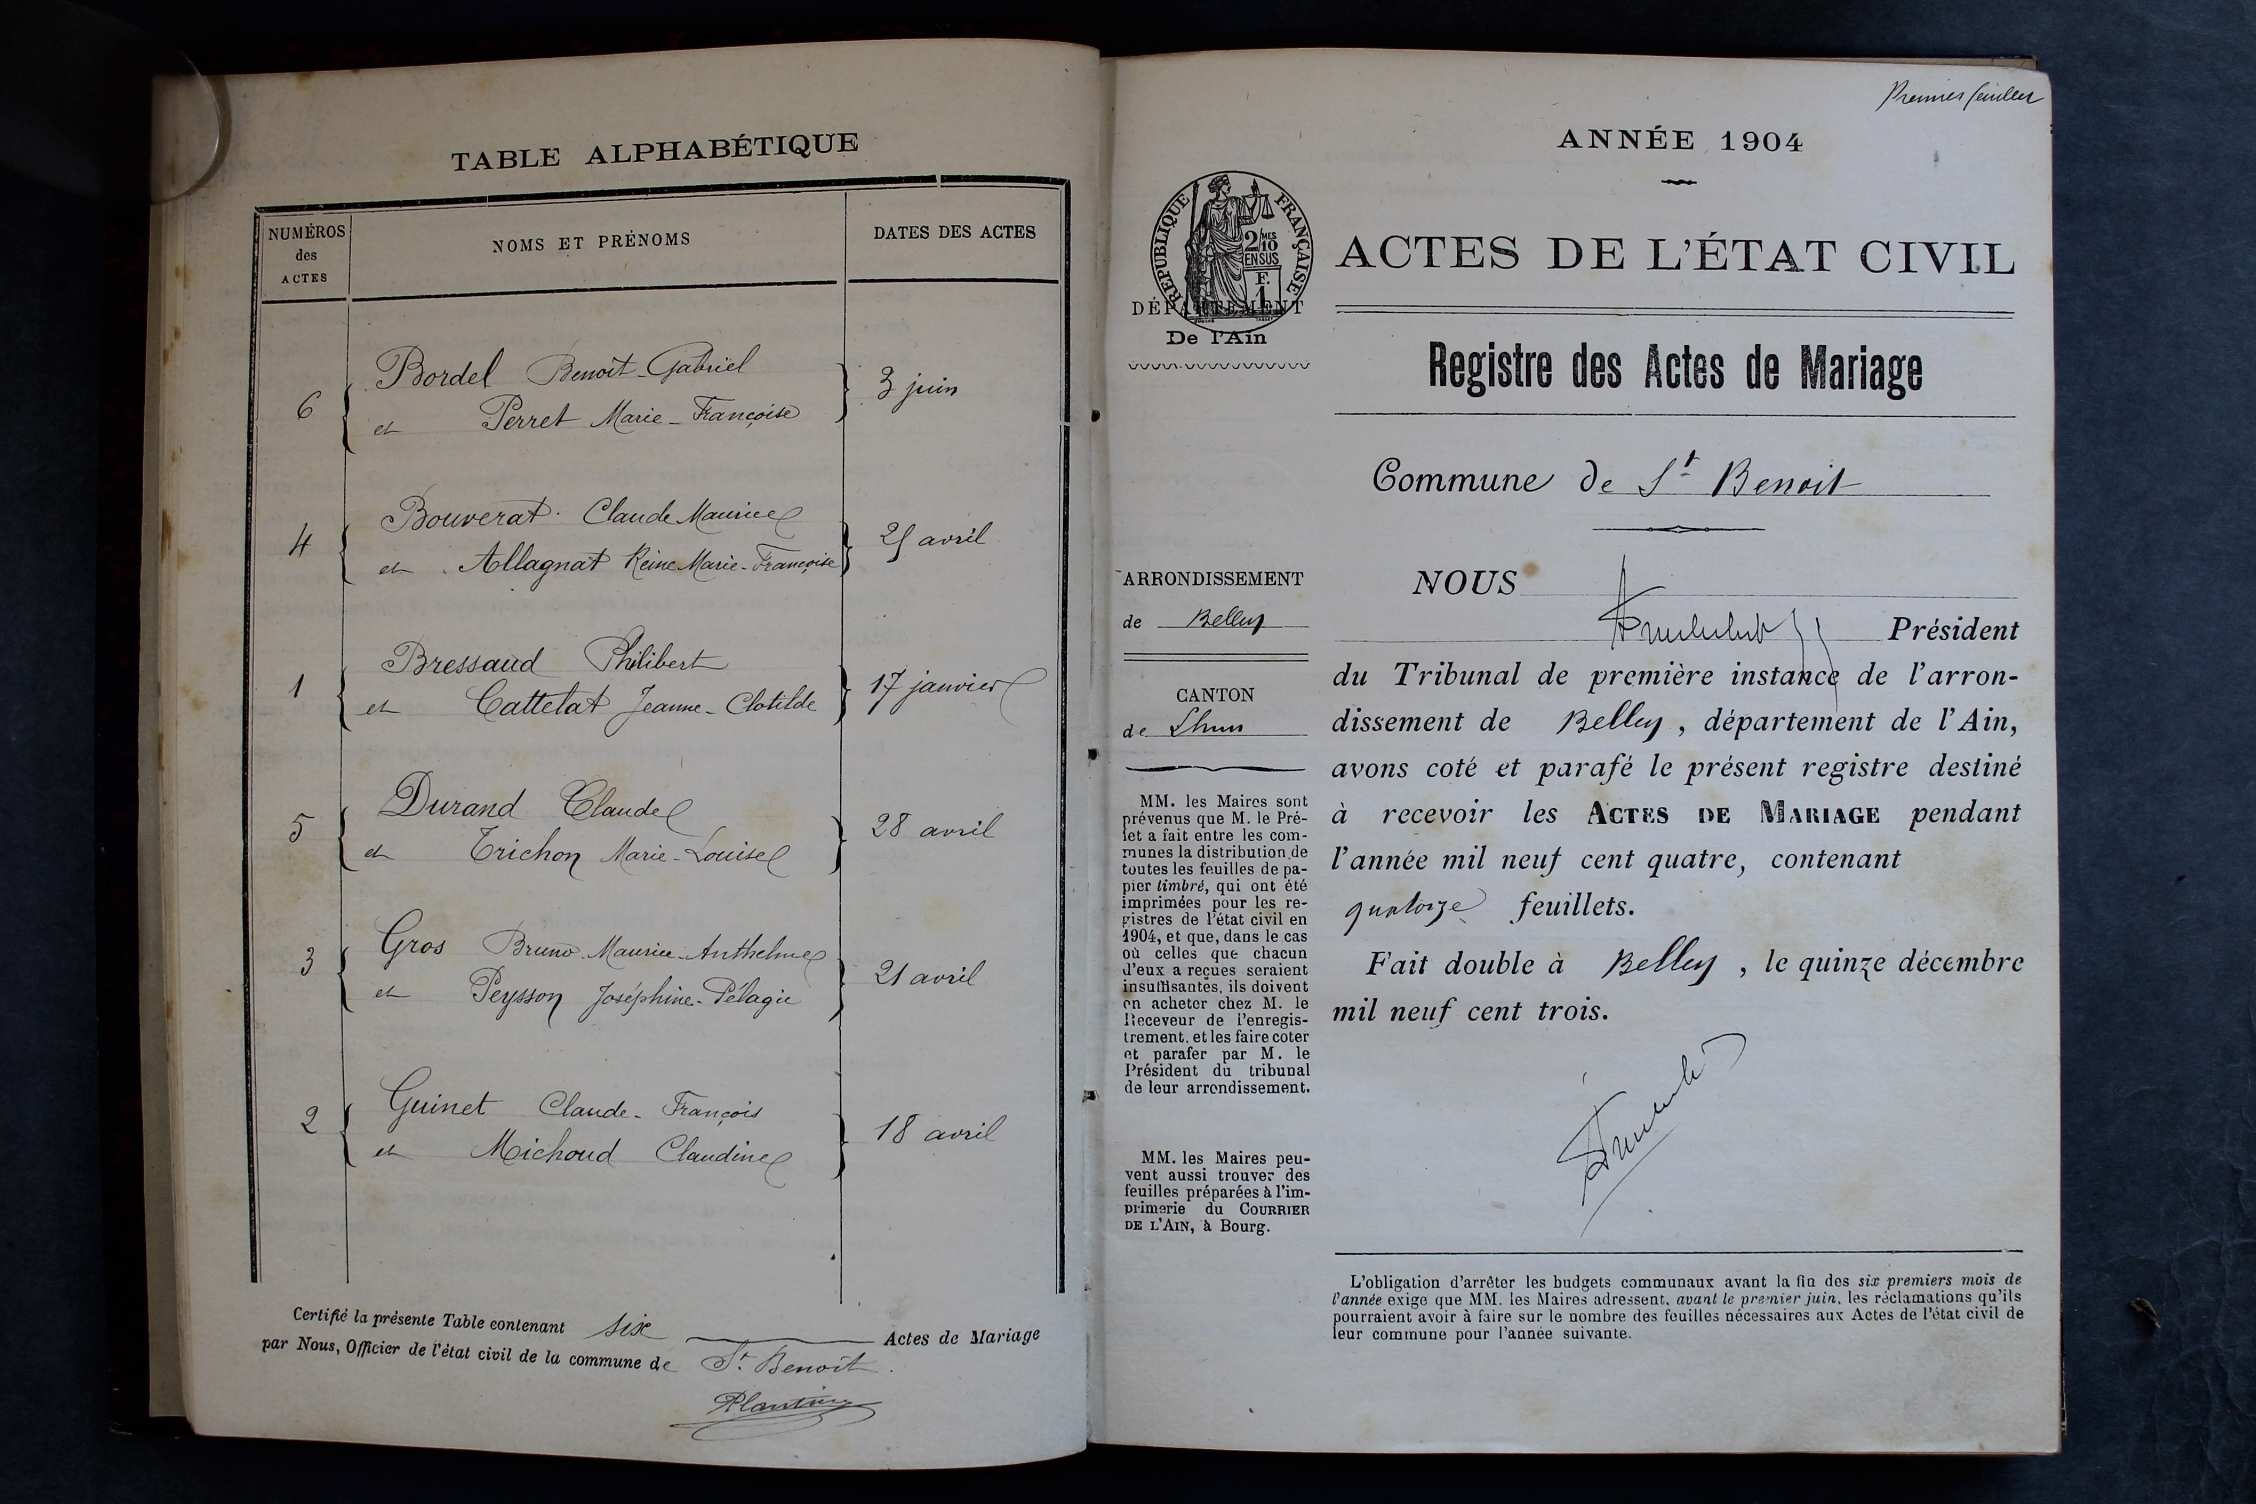 TABLE ALPHABÉTIQUE
NUMÉROS des ACTES
NOMS ET PRÉNOMS
DATES DES ACTES
6 Bordel Benoît-Gabriel
et Perret Marie-Françoise
3 juin
4 Bouverat Claude Maurice
et Allagnat Reine Marie-Françoise
avril
1 Bressaud Philibert
et Cattelat Jeanne-Clotilde
17 janvier
5 Durand Claude
et Trichon Marie-Louise
28 avril
3 Gros Bruno-Maurice-Anthelme
et Peysson Joséphine-Pélagie
21 avril
2 Guinet Claude-François
et Michoud Claudine
18 avril
Certifié la présente Table contenant six Actes de Mariage
par Nous, Officier de l'état civil de la commune de St. Benoît.
Plantin
Premier feuillet
ANNÉE 1904
RÉPUBLIQUE FRANÇAISE
2/10 MES
EN SUS
F.
1
DÉPARTEMENT
De l'Ain
ACTES DE L'ÉTAT CIVIL
Registre des Actes de Mariage
Commune de St Benoit
ARRONDISSEMENT
de Belley
CANTON
de Lhuis
MM. les Maires sont
prévenus que M. le Pré-
fet a fait entre les com-
munes la distribution de
toutes les feuilles de pa-
pier timbré, qui ont été
imprimées pour les re-
gistres de l'état civil en
1904, et que, dans le cas
où celles que chacun
d'eux a reçues seraient
insuffisantes, ils doivent
en acheter chez M. le
Receveur de l'enregis-
trement, et les faire coter
et parafer par M. le
Président du tribunal
de leur arrondissement.
MM. les Maires peu-
vent aussi trouver des
feuilles préparées à l'im-
primerie du COURRIER
DE L'AIN, à Bourg.
NOUS
Président
du Tribunal de première instance de l'arron-
dissement de Belley, département de l'Ain,
avons coté et parafé le présent registre destiné
à recevoir les ACTES DE MARIAGE pendant
l'année mil neuf cent quatre, contenant
quatorze feuillets.
Fait double à Belley, le quinze décembre
mil neuf cent trois.
L'obligation d'arrêter les budgets communaux avant la fin des six premiers mois de
l'année exige que MM. les Maires adressent, avant le premier juin, les réclamations qu'ils
pourraient avoir à faire sur le nombre des feuilles nécessaires aux Actes de l'état civil de
leur commune pour l'année suivante.